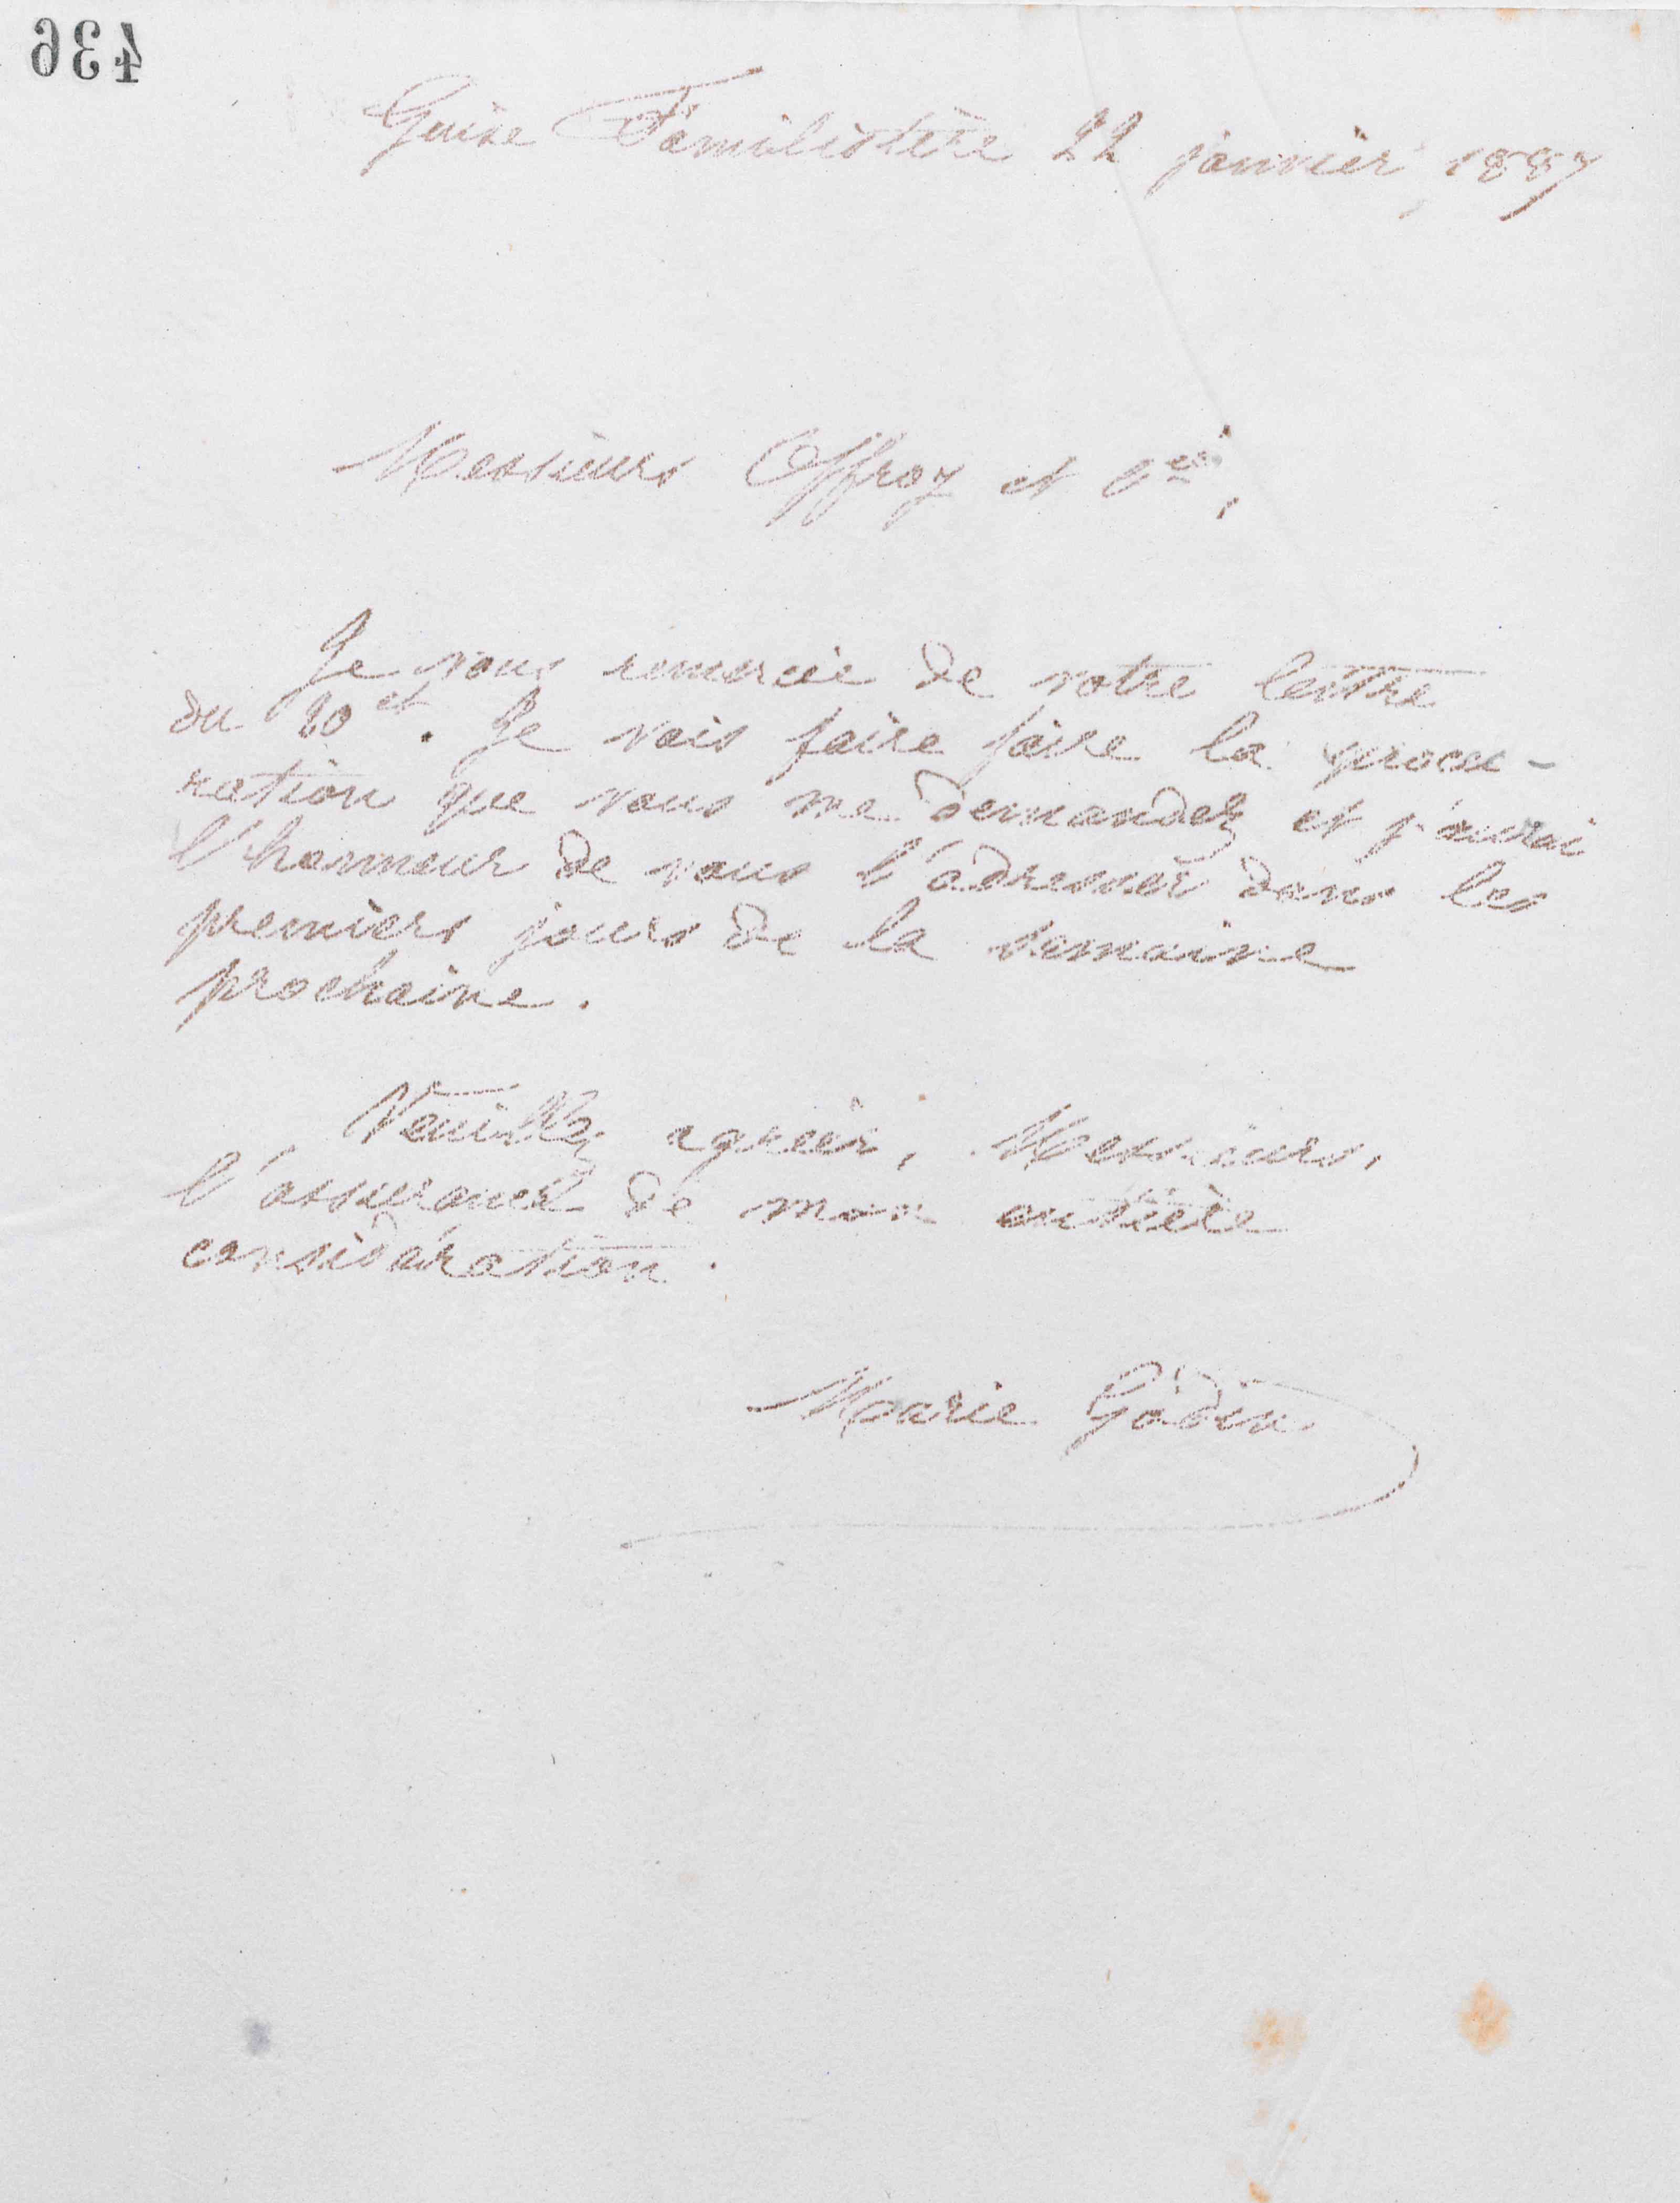 436
Guise Familistère 22 janvier 1887
Messieurs Offroy et Cie,
Je vous remercie de votre lettre
du 20 ct. Je vais faire faire la procu-
ration que vous me demandez et j'aurai
l'honneur de vous l'adresser dans les
premiers jours de la semaine
prochaine.
Veuillez agréer, Messieurs,
l'assurance de mon entière
considération.
Marie Godin